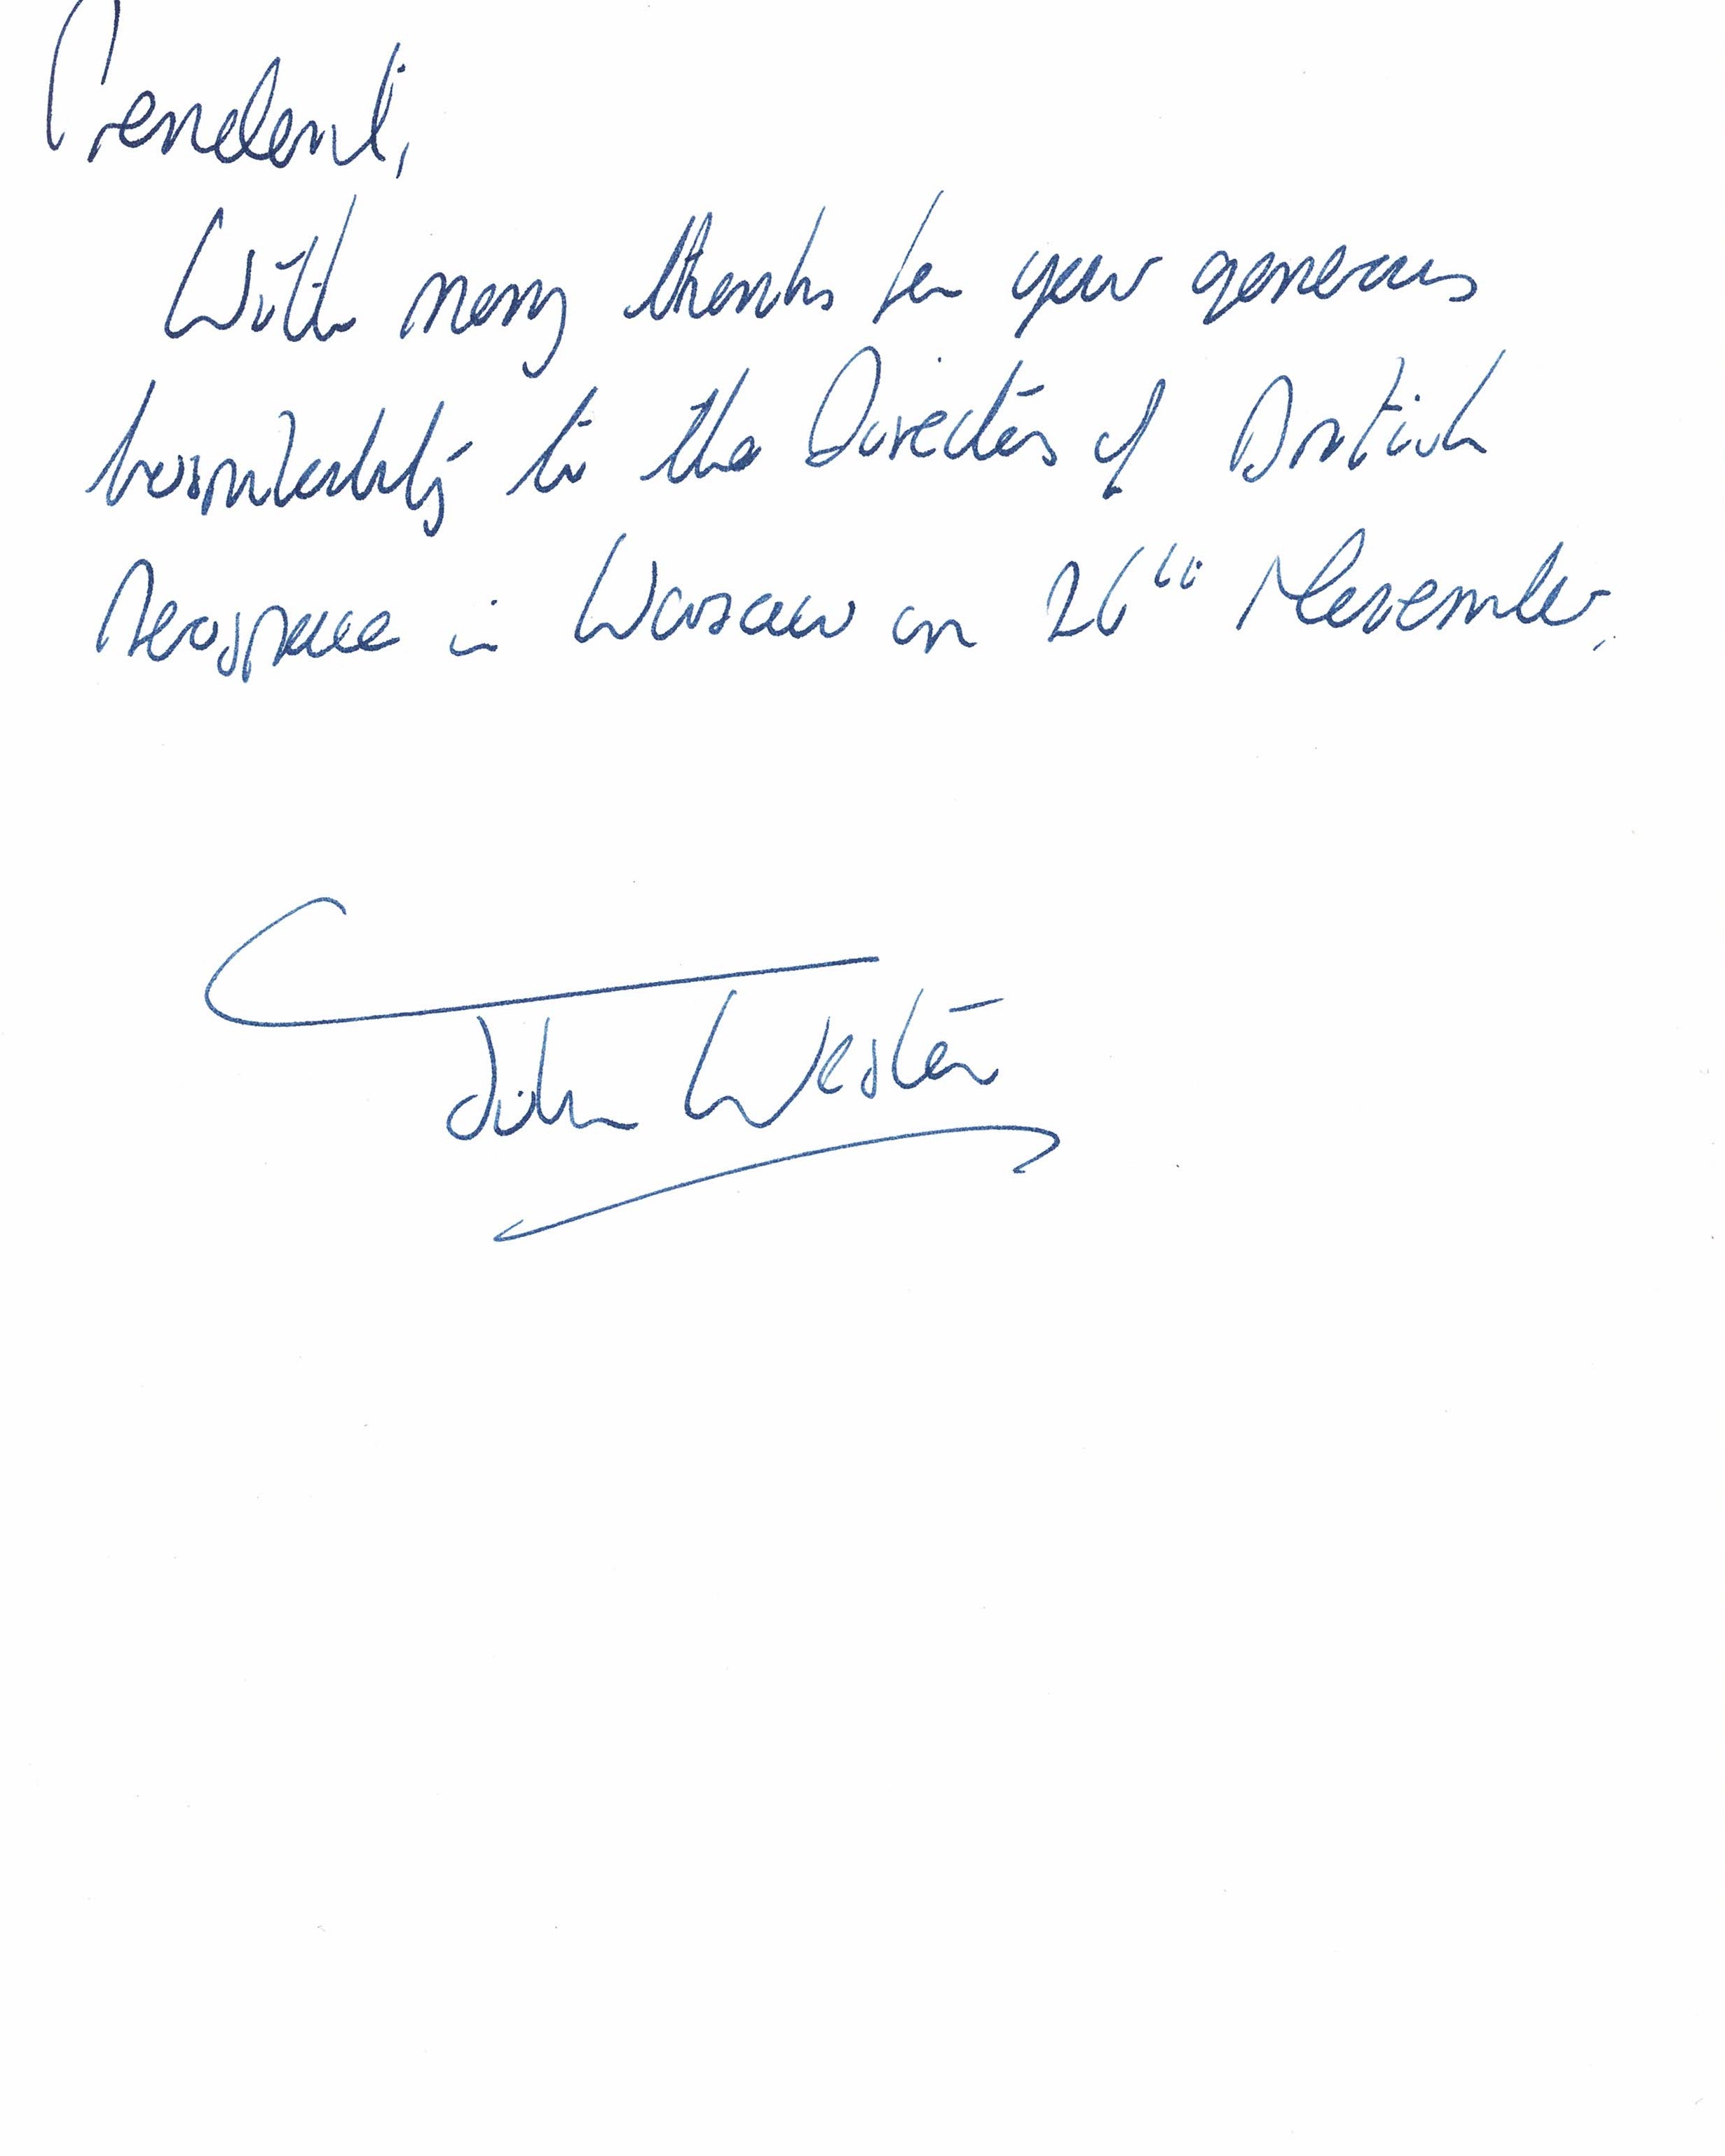 President,
With many thanks for your generous
hospitality to the Directors of British
Aerospace in Warsaw on 26th November.
John Weston